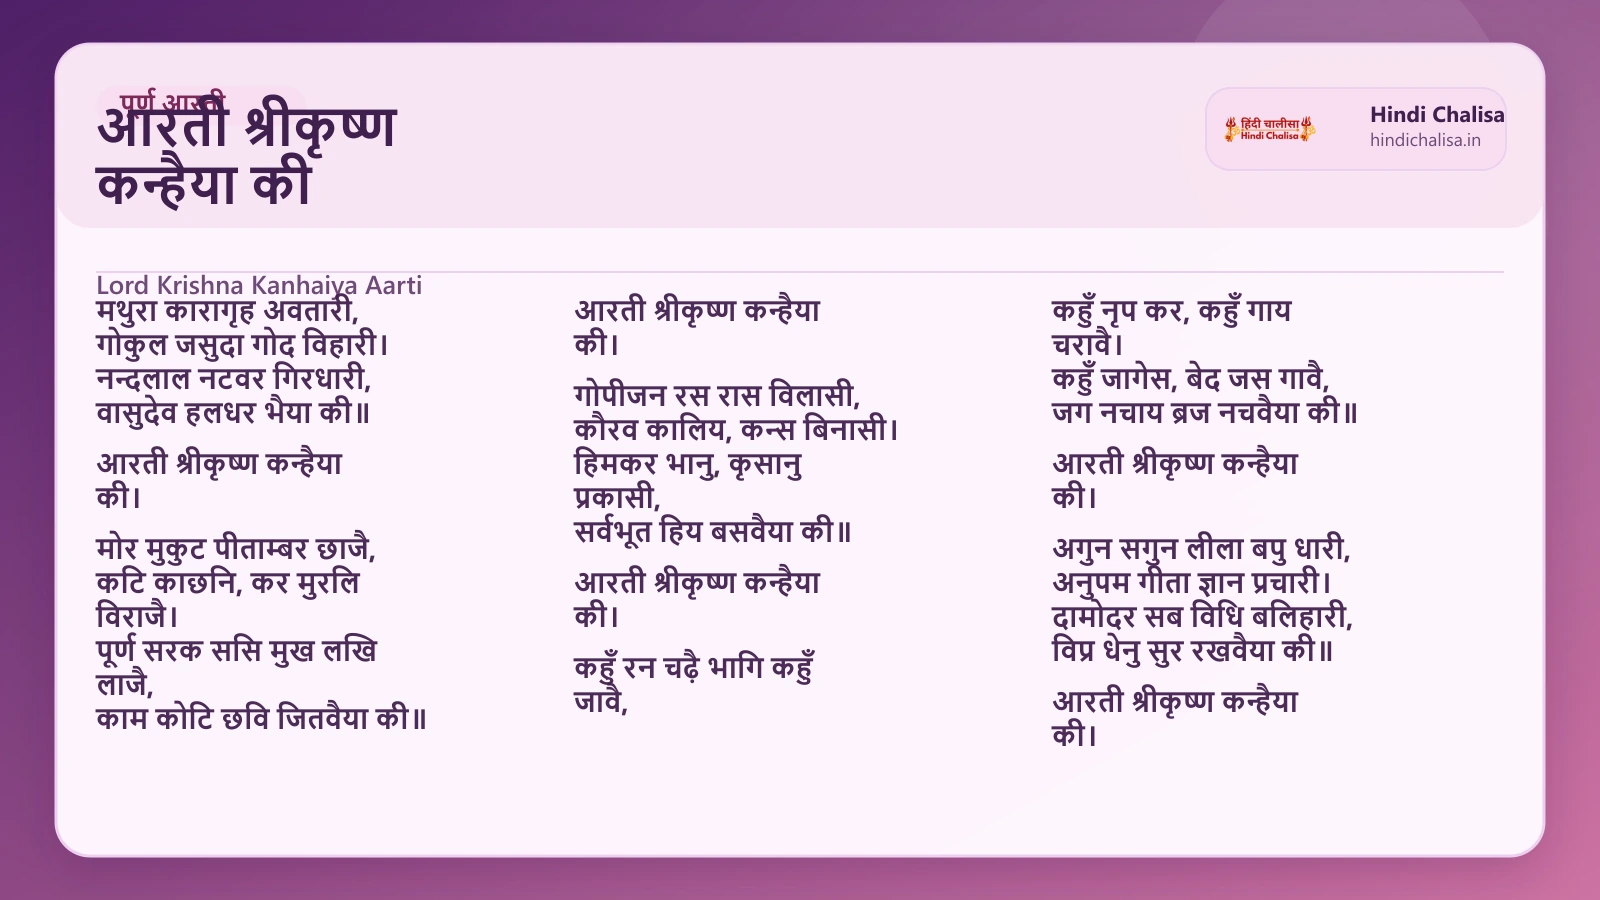 पूर्ण आरती
आरती श्रीकृष्ण
कन्हैया की
हिंदी चालीसा
Hindi Chalisa
Hindi Chalisa
hindichalisa.in
Lord Krishna Kanhaiya Aarti
मथुरा कारागृह अवतारी,
गोकुल जसुदा गोद विहारी।
नन्दलाल नटवर गिरधारी,
वासुदेव हलधर भैया की॥
आरती श्रीकृष्ण कन्हैया
की।
मोर मुकुट पीताम्बर छाजै,
कटि काछनि, कर मुरलि
विराजै।
पूर्ण सरक ससि मुख लखि
लाजै,
काम कोटि छवि जितवैया की॥
आरती श्रीकृष्ण कन्हैया
की।
गोपीजन रस रास विलासी,
कौरव कालिय, कन्स बिनासी।
हिमकर भानु, कृसानु
प्रकासी,
सर्वभूत हिय बसवैया की॥
आरती श्रीकृष्ण कन्हैया
की।
कहुँ रन चढ़ै भागि कहुँ
जावै,
कहुँ नृप कर, कहुँ गाय
चरावै।
कहुँ जागेस, बेद जस गावै,
जग नचाय ब्रज नचवैया की॥
आरती श्रीकृष्ण कन्हैया
की।
अगुन सगुन लीला बपु धारी,
अनुपम गीता ज्ञान प्रचारी।
दामोदर सब विधि बलिहारी,
विप्र धेनु सुर रखवैया की॥
आरती श्रीकृष्ण कन्हैया
की।